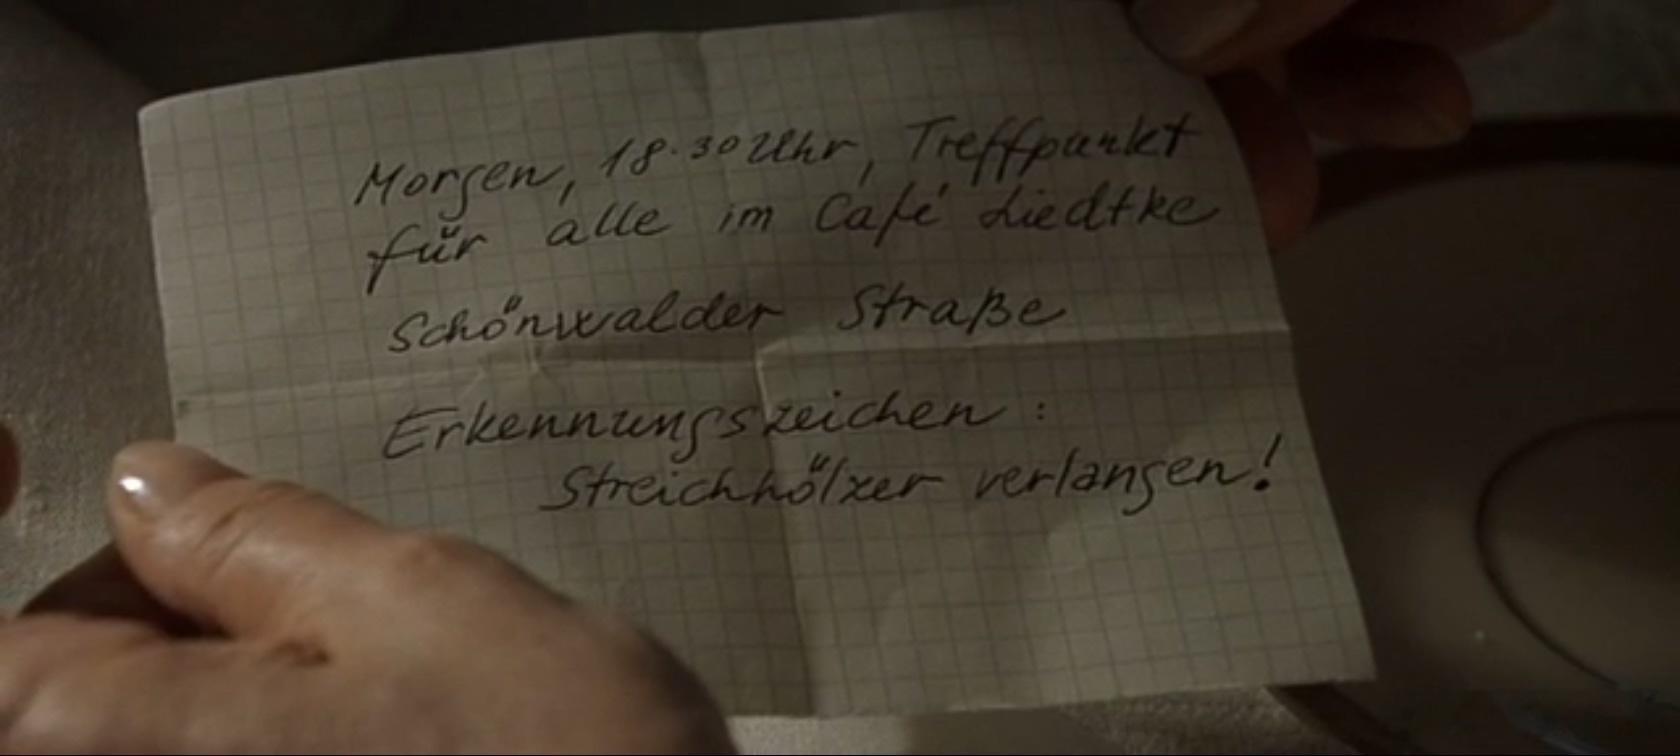 Morgen, 18.30 Uhr, Treffpunkt
für alle im Café Liedtke
Schönwalder Straße
Erkennungszeichen:
Streichhölzer verlangen!